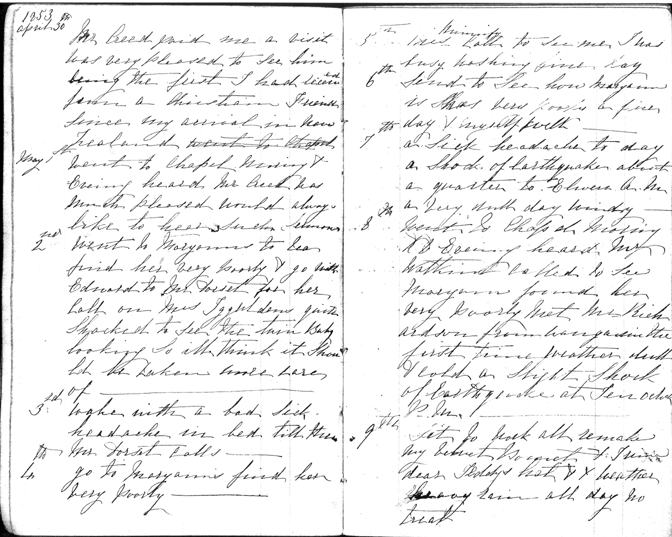 1853
april 30th
Mr Creed paid me a visit
was very pleased to See him
being the first I had
from a Christian Friend
Since my arrival in New
Zealand went to Chapel
May 1st
Went to Chapel Morning &
Evning heard Mr Creed was
Much pleased would always
like to hear Such Sermons
2nd
Went to Maryanns to tea
find her very Poorly & go with
Edward to Mr Dorset for her
Call on Mrs Igguldens quite
Shocked to See the turn Baby
looking So ill think it Shou
ld be taken more care
of
3rd
Woke with a bad Sick
headache in bed till three
Mr Dorset Calls
4th
go to Maryanns find her
very Poorly
5th
Mrs Call to See me I was
busy washing fine day
6th
Send to See how Maryann
is She is very poorly a fine
day & myself
7th
a Sick headache to day
a Shock of Earthquake about
a quarter to Eleven A.M
a very dull day windy
8th
Went to Chapel Morning
& Evening heard Mr
Watkins Called to See
Maryann found her
very Poorly Met Mr Rich
ardson from Wanganui the
first time Weather dull
& Cold a Slight Shock
of Earthquake at Ten oclock
P.M.
9th
Sit to Work all remake
my Velvet Bonnet & Trim
dear Teddys hat & & Weather
heavy rain all day No
treat